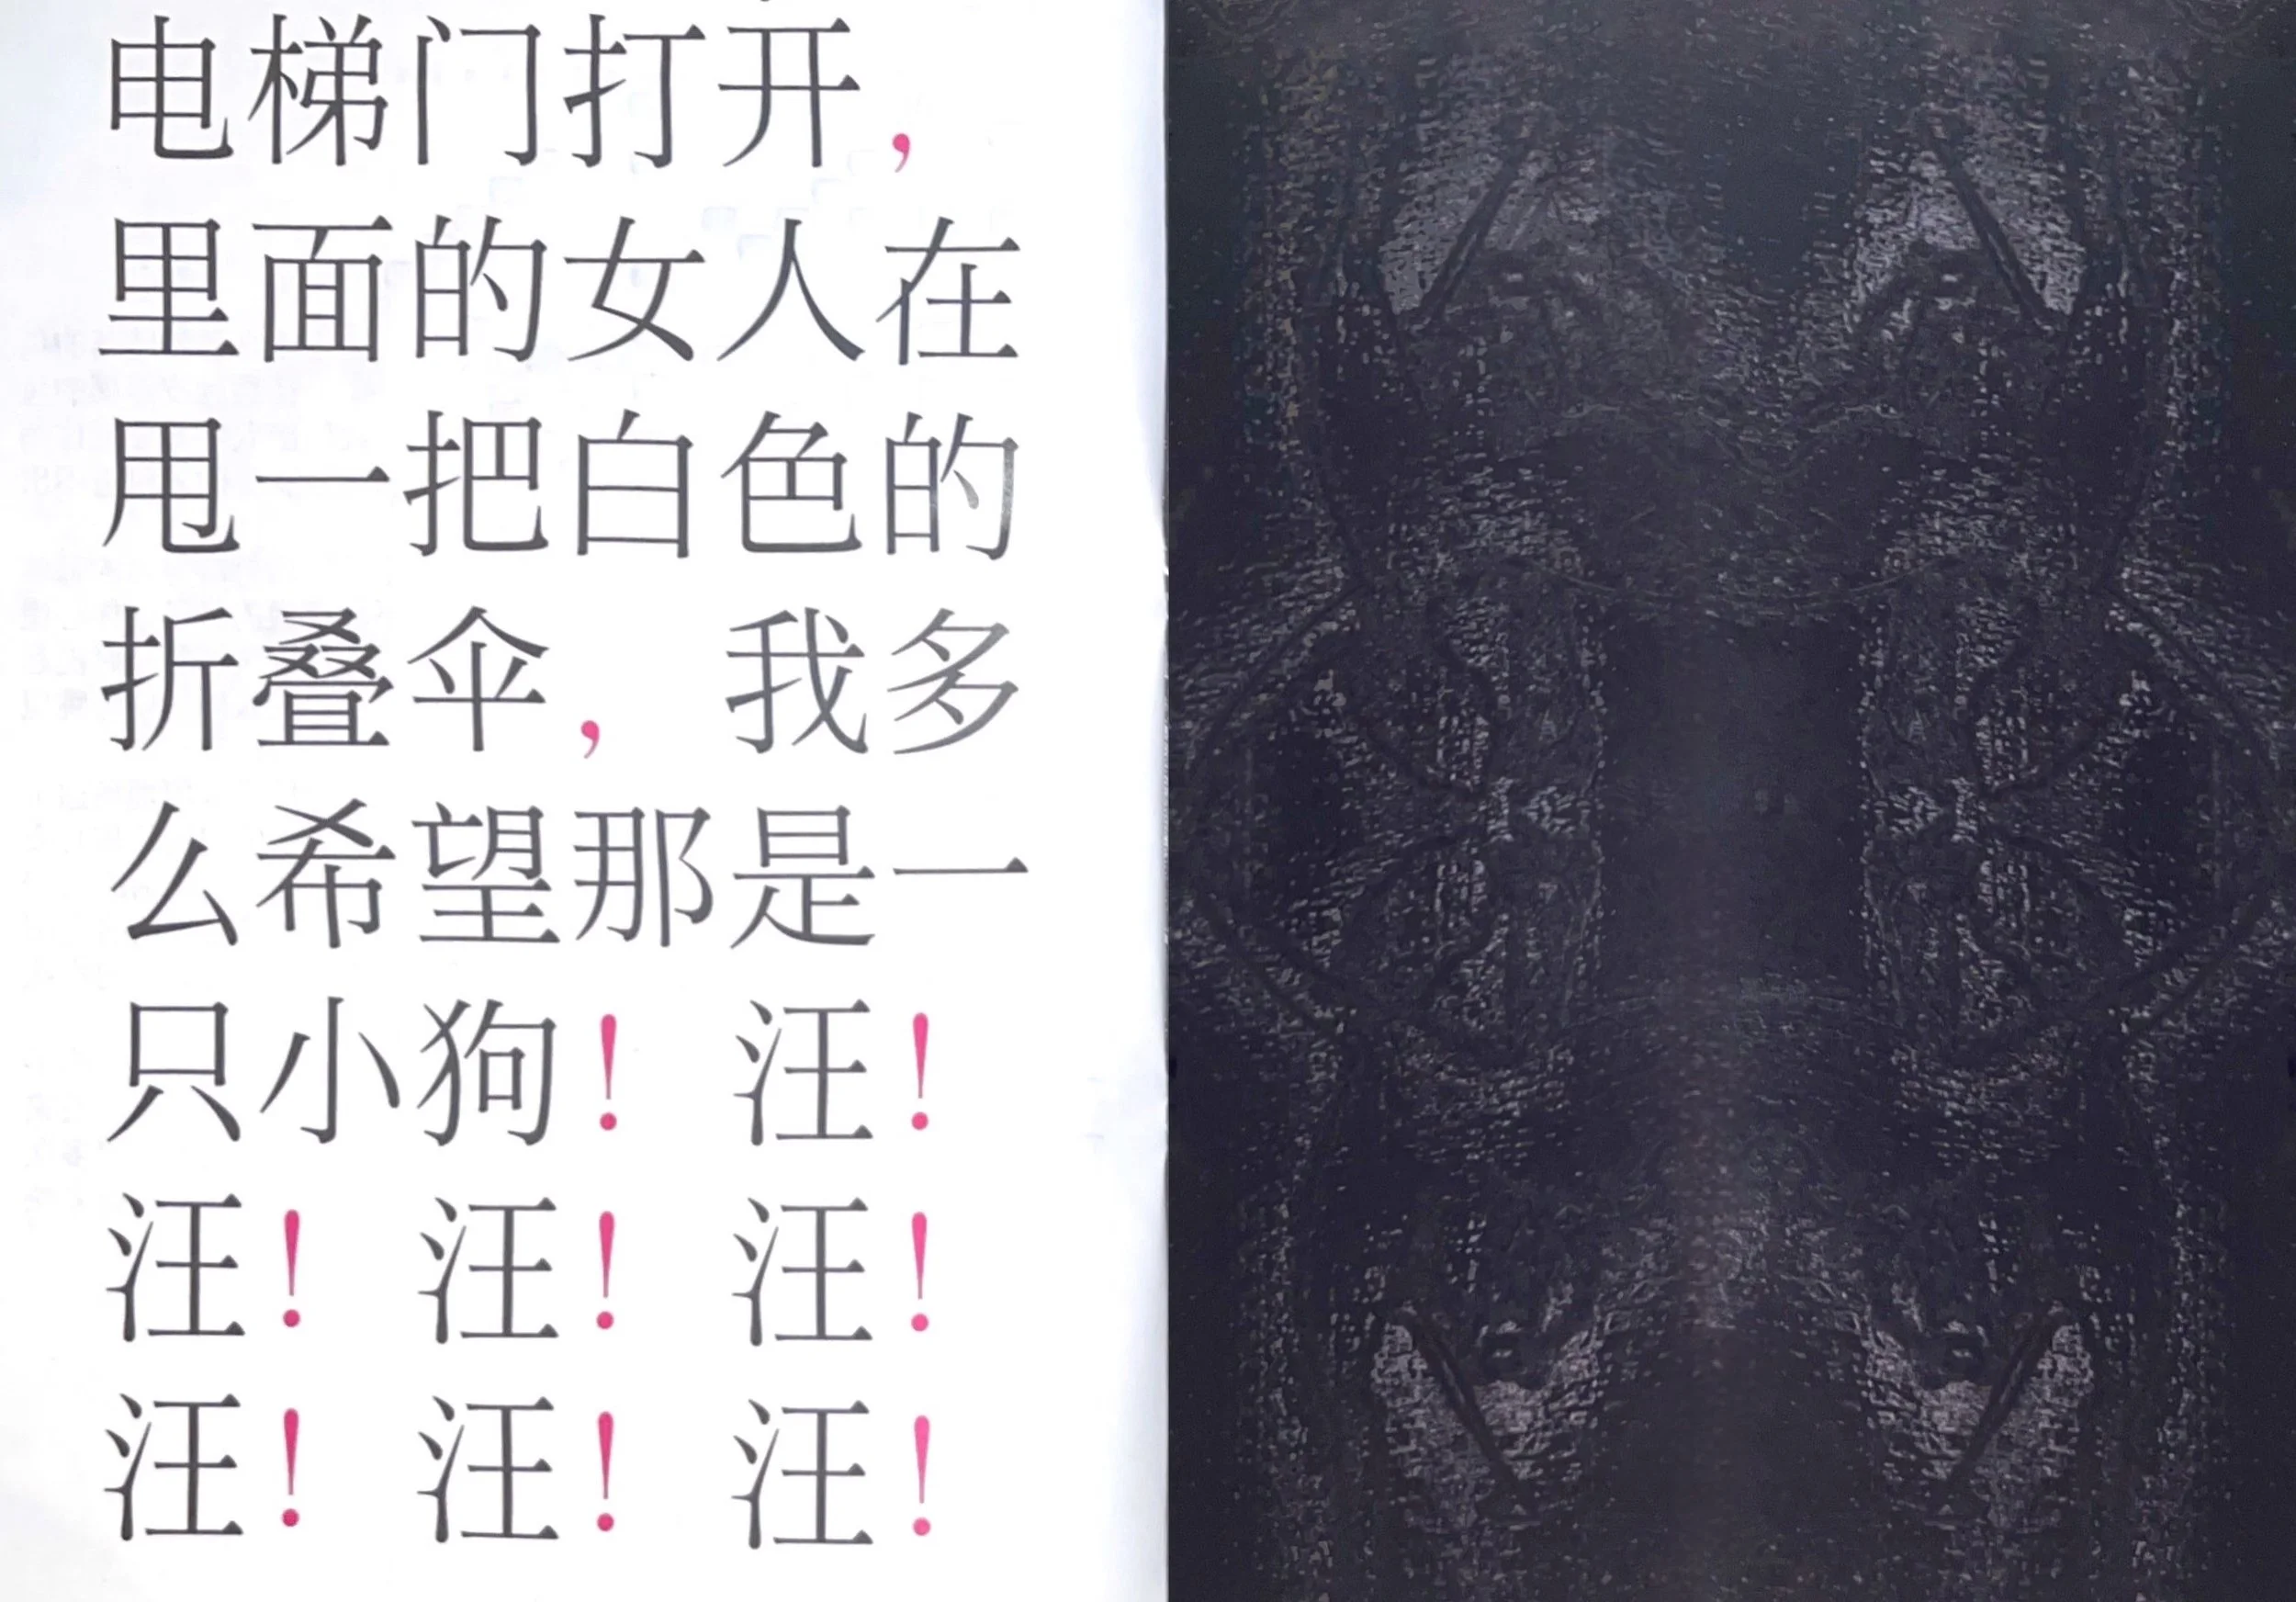 电梯门打开，
里面的女人在
甩一把白色的
折叠伞， 我多
么希望那是一
只小狗！ 汪！
汪！ 汪！ 汪！
汪！ 汪！ 汪！